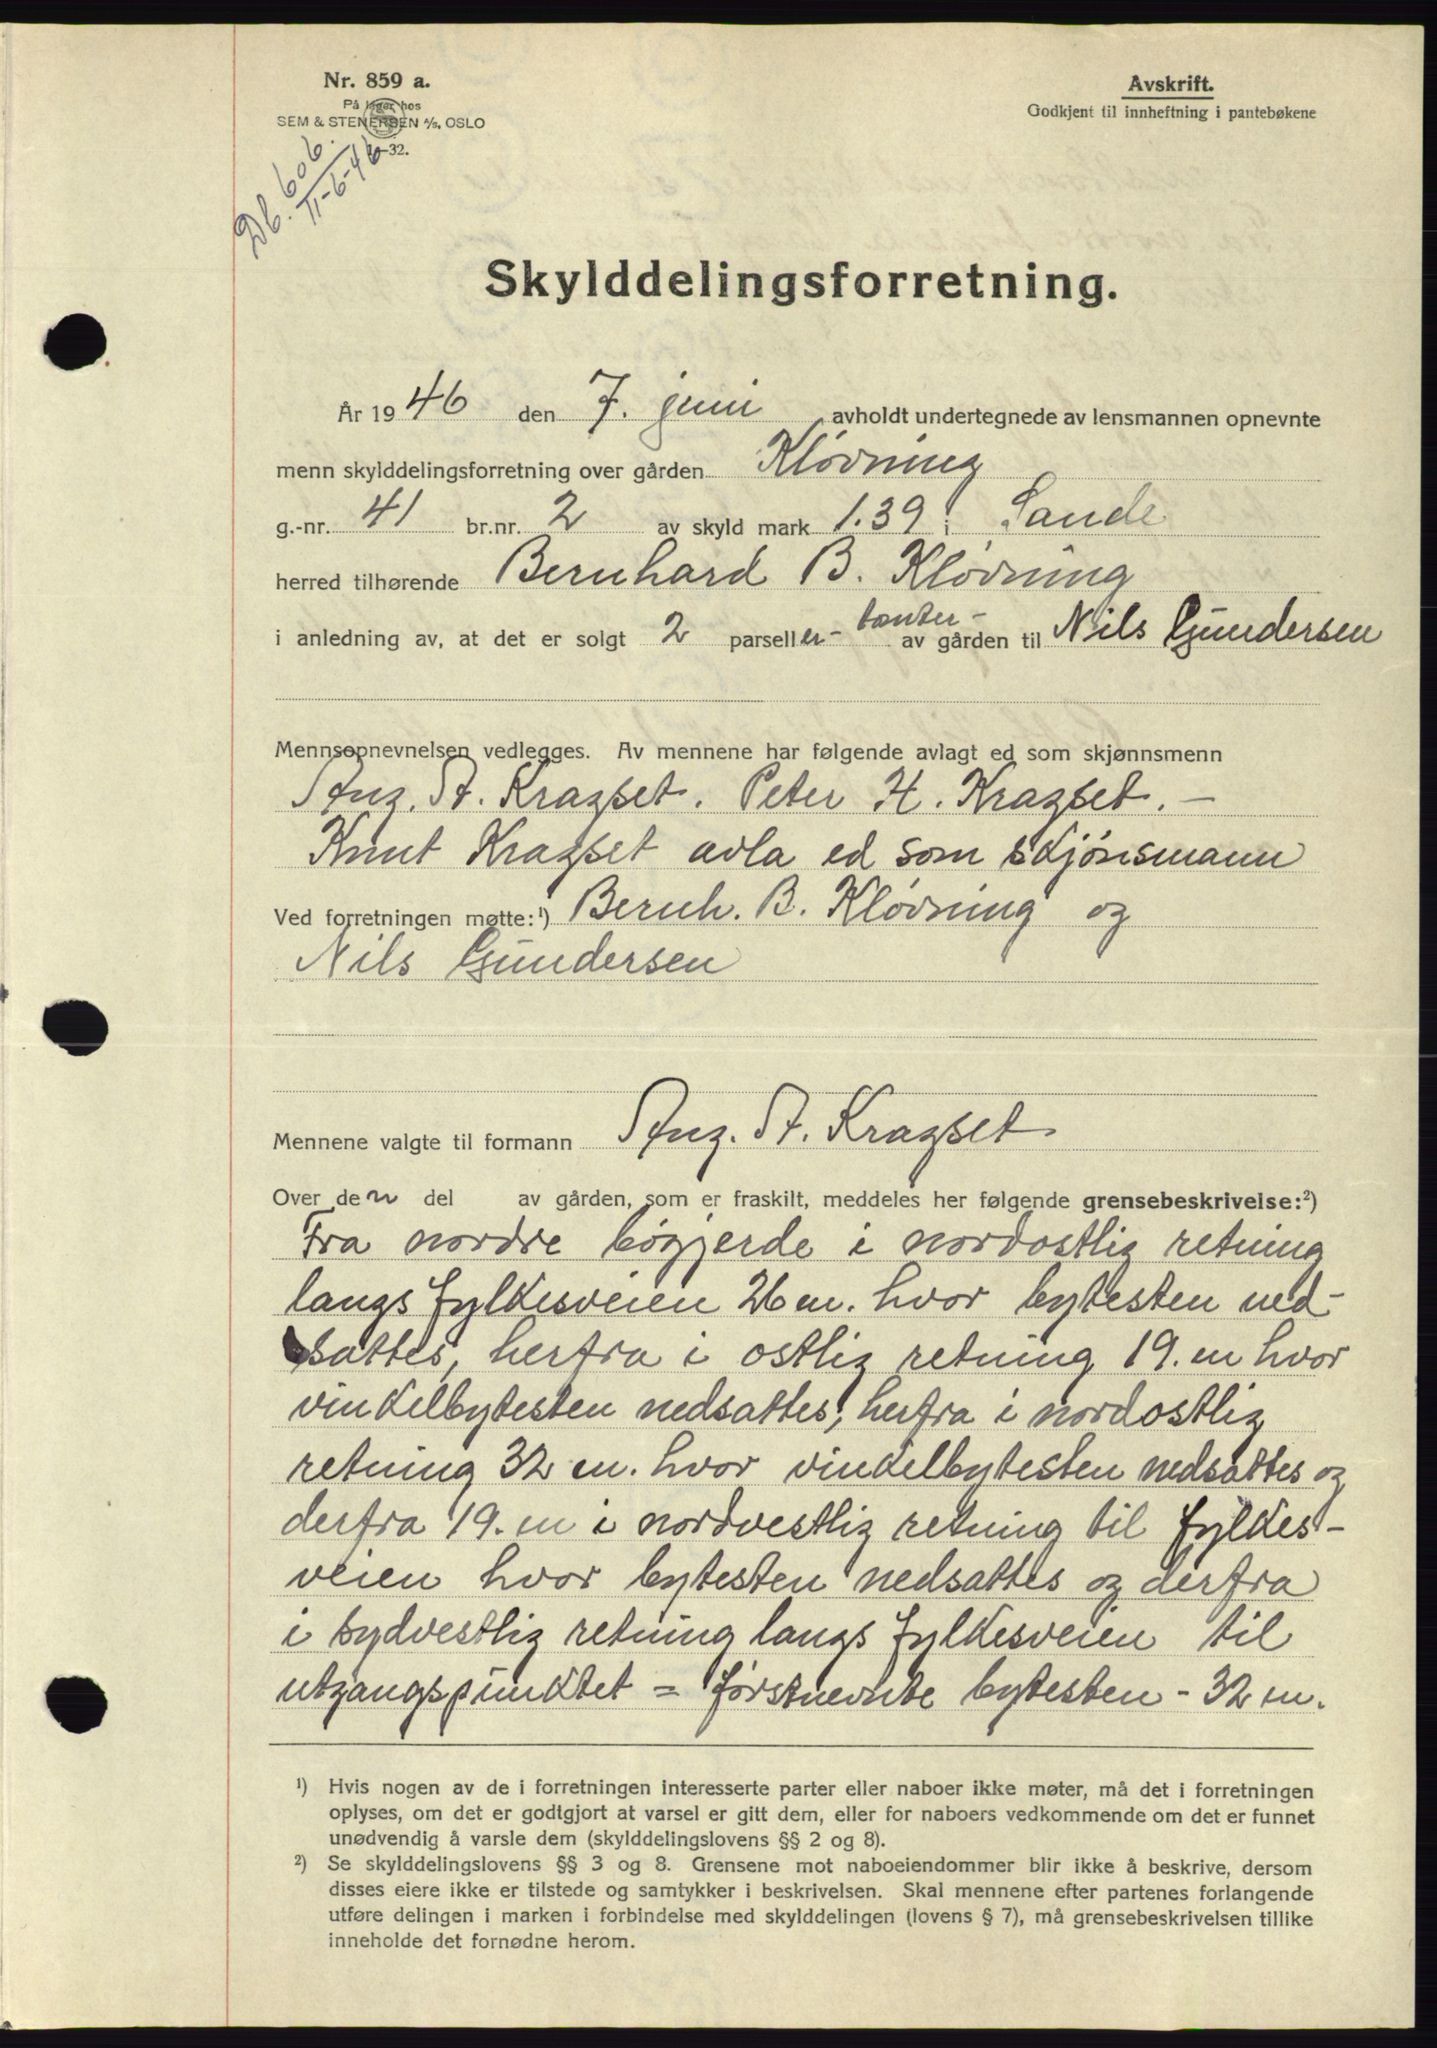 Nr. 859 a.
På lager hos
SEM & STENERSEN A/S, OSLO
-32.
Db. 606.
11-6-46
Avskrift.
Godkjent til innheftning i pantebøkene
Skylddelingsforretning.
År 1946 den 7. juni avholdt undertegnede av lensmannen opnevnte
menn skylddelingsforretning over gården Kløvning
g.-nr. 41 br.nr. 2 av skyld mark 1.39 i Sande
herred tilhørende Bernhard B. Kløvning
i anledning av, at det er solgt 2 parseller - tomter - av gården til Nils Gundersen
Mennsopnevnelsen vedlegges. Av mennene har følgende avlagt ed som skjønnsmenn
A. Kragset. Peter H. Kragset. -
Knut Kragset avla ed som skjønsmann
Ved forretningen møtte:¹) Bernh. B. Kløvning og
Nils Gundersen
Mennene valgte til formann A. Kragset
Over den del av gården, som er fraskilt, meddeles her følgende grensebeskrivelse:²)
Fra nordre bøgjerde i nordostlig retning
langs fylkesveien 26 m. hvor bytesten ned-
sattes, herfra i ostlig retning 19. m hvor
vinkelbytesten nedsattes, herfra i nordostlig
retning 32 m. hvor vinkelbytesten nedsattes og
derfra 19. m i nordvestlig retning til fylkes-
veien hvor bytesten nedsattes og derfra
i sydvestlig retning langs fylkesveien til
utgangspunktet = førstnevnte bytesten - 32 m.
¹) Hvis nogen av de i forretningen interesserte parter eller naboer ikke møter, må det i forretningen
oplyses, om det er godtgjort at varsel er gitt dem, eller for naboers vedkommende om det er funnet
unødvendig å varsle dem (skylddelingslovens §§ 2 og 8).
²) Se skylddelingslovens §§ 3 og 8. Grensene mot naboeiendommer blir ikke å beskrive, dersom
disses eiere ikke er tilstede og samtykker i beskrivelsen. Skal mennene efter partenes forlangende
utføre delingen i marken i forbindelse med skylddelingen (lovens § 7), må grensebeskrivelsen tillike
inneholde det fornødne herom.